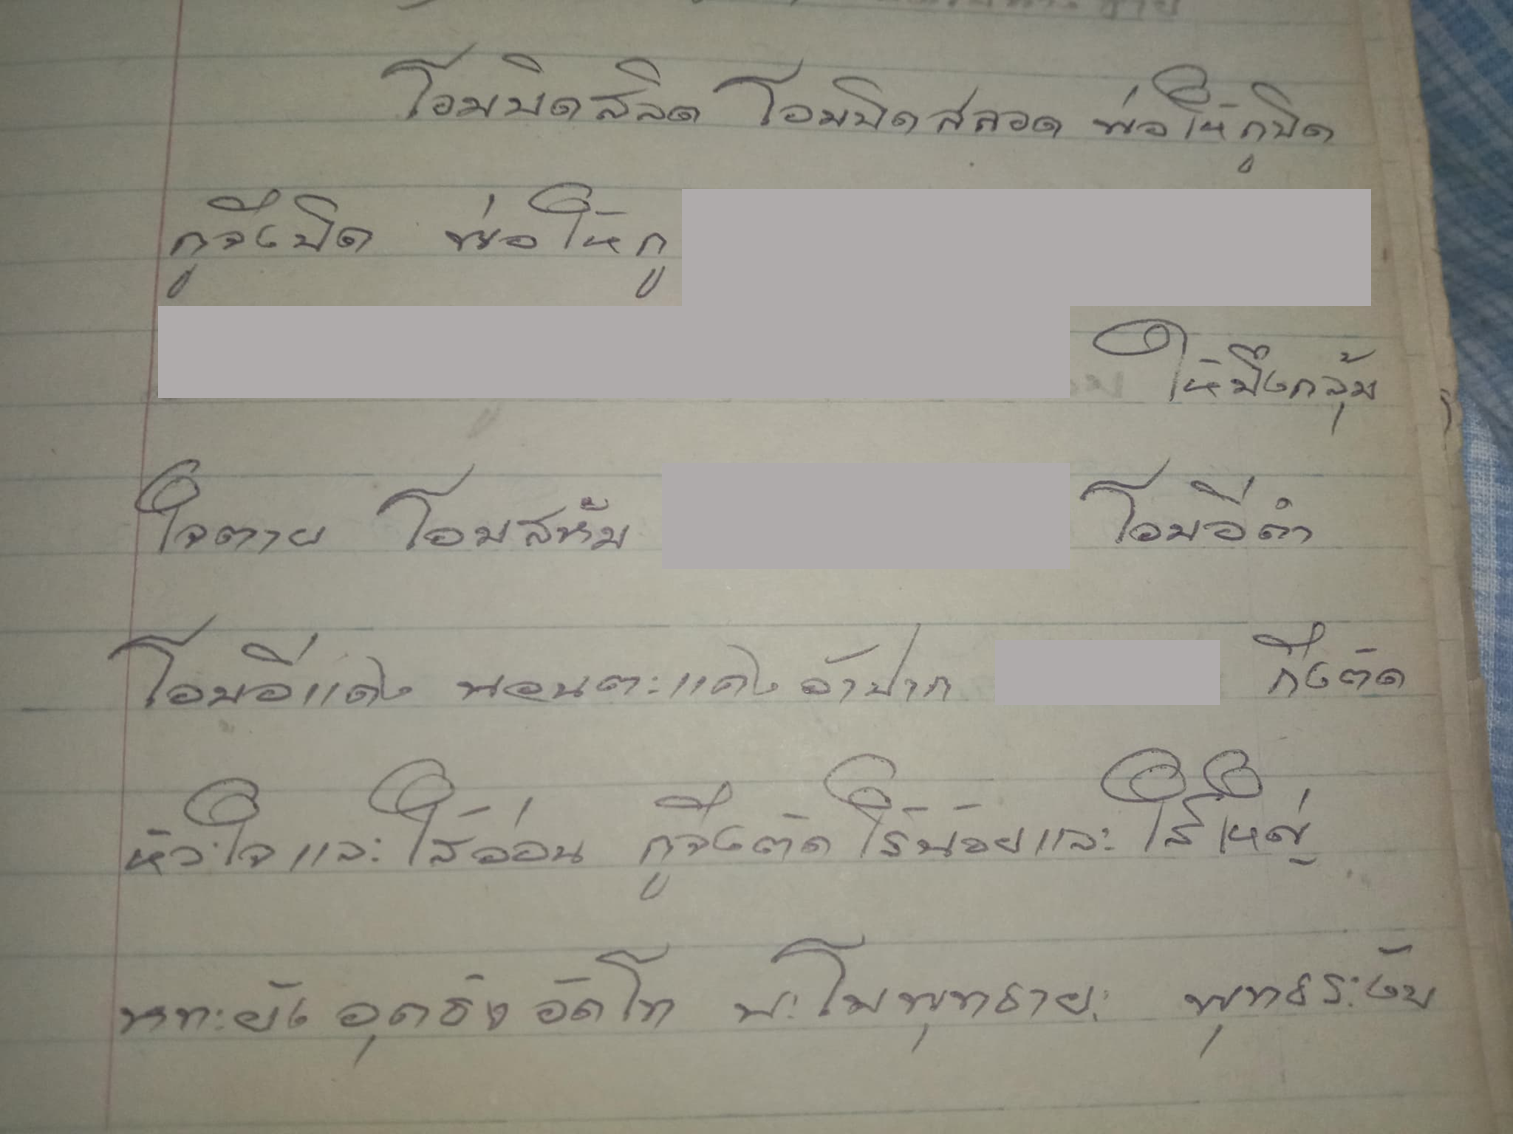 โอมปิดสลิด โอมปิดสลอด พ่อให้กูปิด
กูจึงปิด พ่อให้กู
ให้มึงกลุ้ม
ใจตาย โอมสหับ โอมอีดำ
โอมอีแดง นอนตะแคงอ้าปาก กึงตัด
หัวใจและไส้อ่อน กูจึงตัดไส้น้อยและไส้ใหญ่
หทะยัง อุดธัง อัดโท นะโมพุทธายะ พุทธระงับ